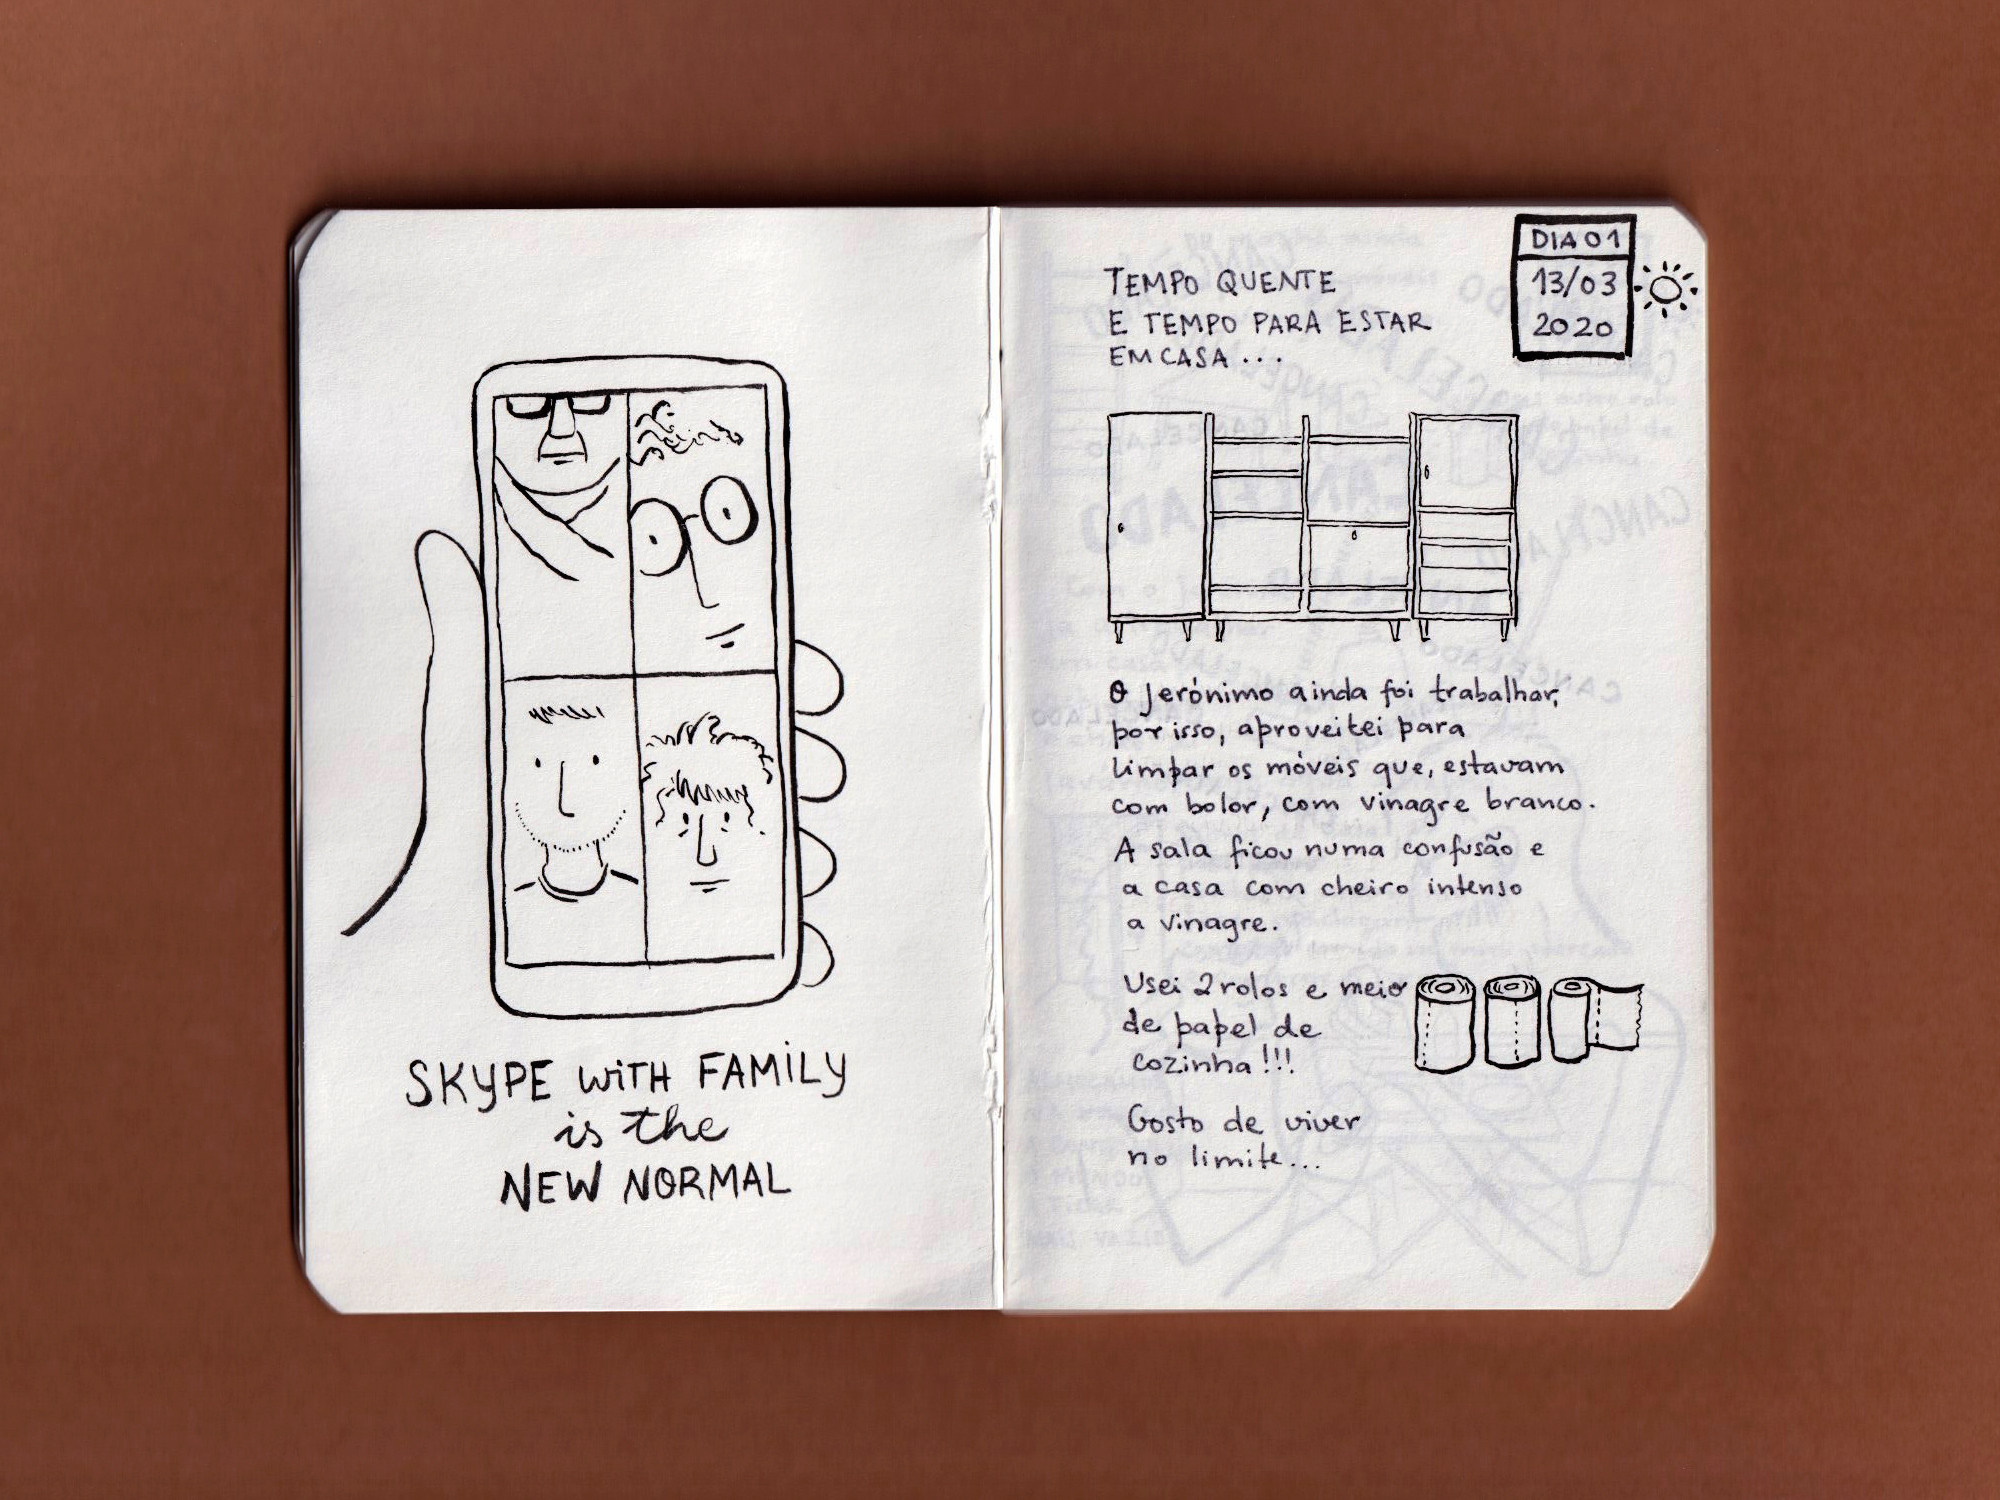 SKYPE WiTH FAMiLY
is the
NEW NORMAL
DIA 01
13/03
2020
TEMPO QUENTE
E TEMPO PARA ESTAR
EM CASA...
O Jerónimo ainda foi trabalhar,
por isso, aproveitei para
limpar os móveis que, estavam
com bolor, com vinagre branco.
A sala ficou numa confusão e
a casa com cheiro intenso
a vinagre.
Usei 2 rolos e meio
de papel de
cozinha!!!
Gosto de viver
no limite...